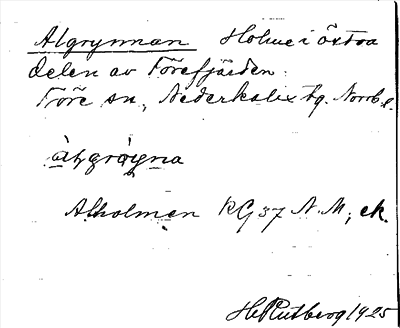 Algrynnan Holme i östra
delen av Törefjärden.
Töre sn, Nederkalix tg. Norrb. l.
Alholmen RG 37 N.M., ek.
H. Rutberg 1925